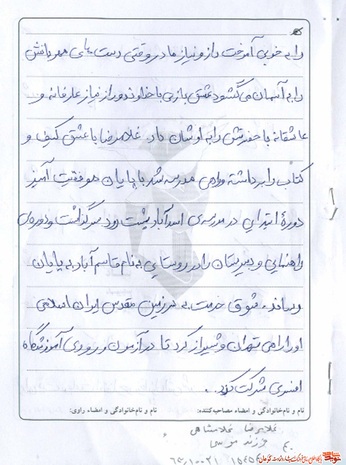 را به خوبی آموخت راز و نیاز مادر وقتی دست های مهربانش
را به آسمان می گشود عشق بازی با خداوند و راز و نیاز عارفانه و
عاشقانه با حضرتش را به او نشان داد. غلامرضا با عشق کیف و
کتاب را برداشته و راهی مدرسه شد با پایان موفقیت آمیز
دوره ابتدایی در مدرسه ی اسدآباد پشت رود سر گذاشت و دوره ی
راهنمایی و دبیرستان را در روستایی به نام قاسم آباد به پایان
رساند. شوق خدمت به سرزمین مقدس ایران اسلامی
او را راهی تهران و شیراز کرد تا در آزمون ورودی آموزشگاه
افسری شرکت کند.
نام و نام خانوادگی و امضاء مصاحبه کننده: نام و نام خانوادگی و امضاء راوی:
غلامرضا غلامشاهی
فرزند موسی